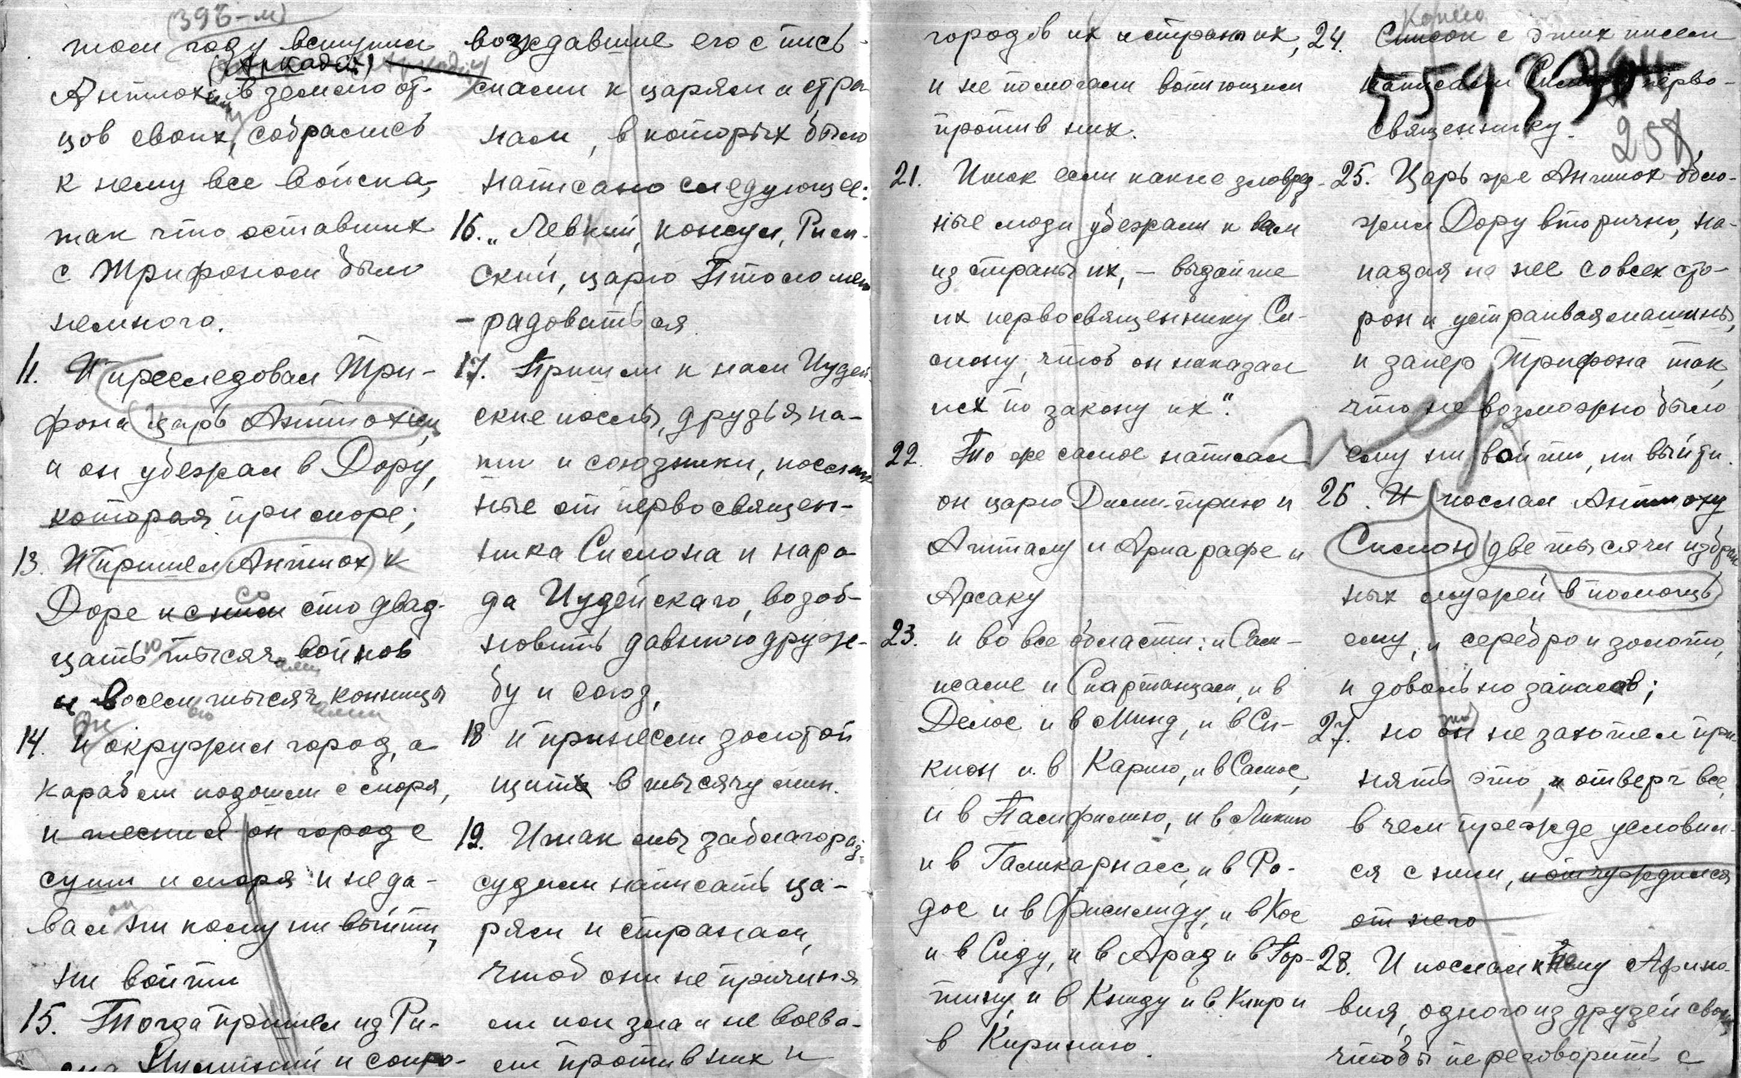 (396-м)
том году вступил
(Аркадий)
Антиох в землю от-
цов своих, собрались
к нему все войска,
так что оставших
с Трифоном было
немного.
11. И преследовал Три-
фона царь Антиох,
и он убежал в Дору,
которая при море;
13. И пришел Антиох к
Доре и с ним сто двад-
со
цать тысяч войнов
и восем тысяч конницы
14. И окружил город, а
карабли подошли с моря,
и теснил он город с
суши и моря и не да-
он
вал ни кому ни выйти,
ни войти
15. Тогда пришел из Ри-
ма и сопро-
вождавшие его с пись-
мами к царям и стра-
нам, в которых было
написано следующее:
16. „Левкий, консул, Рим-
ский, царю Птоломею
– радоваться
17. Пришли к нам Иудей-
ские послы, друзья на-
ши и союзники, послан
ные от первосвящен-
ника Симона и наро-
да Иудейскаго, возоб-
новить давнюю друж-
бу и союз,
18 и принесли золотой
щит в тысячу мин.
19. Итак мы заблагораз-
судили написать ца-
рям и странам,
чтоб они не причиня
ли им зла и не воева-
ли против них и
городов их и страны их,
и не помогали воюющим
против них.
21. Итак если какие зловред-
ные люди убежали к вам
из страны их, – выдайте
их первосвященнику Си-
мону, чтоб он наказал
их по закону их".
22. То же самое написал
он царю Димитрию и
Атталу и Ариарафе и
Арсаку
23. и во все области: и Сам-
псаме и Спартанцам, и в
Делос и в Минд, и в Си-
кион и в Карию, и в Самос,
и в Памфилию, и в Ликию
и в Галикарнасс, и в Ро-
дос и в Фасилиду, и в Кос
и в Сиду, и в Арад и в Гор-
тину, и в Книду и в Кипр и
в Киринию.
Копию
24. Список с этих писем
написали Симону перво-
священнику.
258
25. Царь же Антиох обло-
жил Дору вторично, на-
падая на нее со всех сто-
рон и устраивая машины,
и запер Трифона так,
что не возможно было
ему ни войти, ни выйти.
26. И послал Антиоху
Симон две тысячи избран
ных мужей в помощь
ему, и серебро и золото,
и довольно запасов;
27. но он не захотел при-
нять это, и отверг все,
в чем прежде условил-
ся с ним, и отчуждился
от него
28. И послал к нему Афино-
вия, одного из друзей своих,
чтобы переговорить с